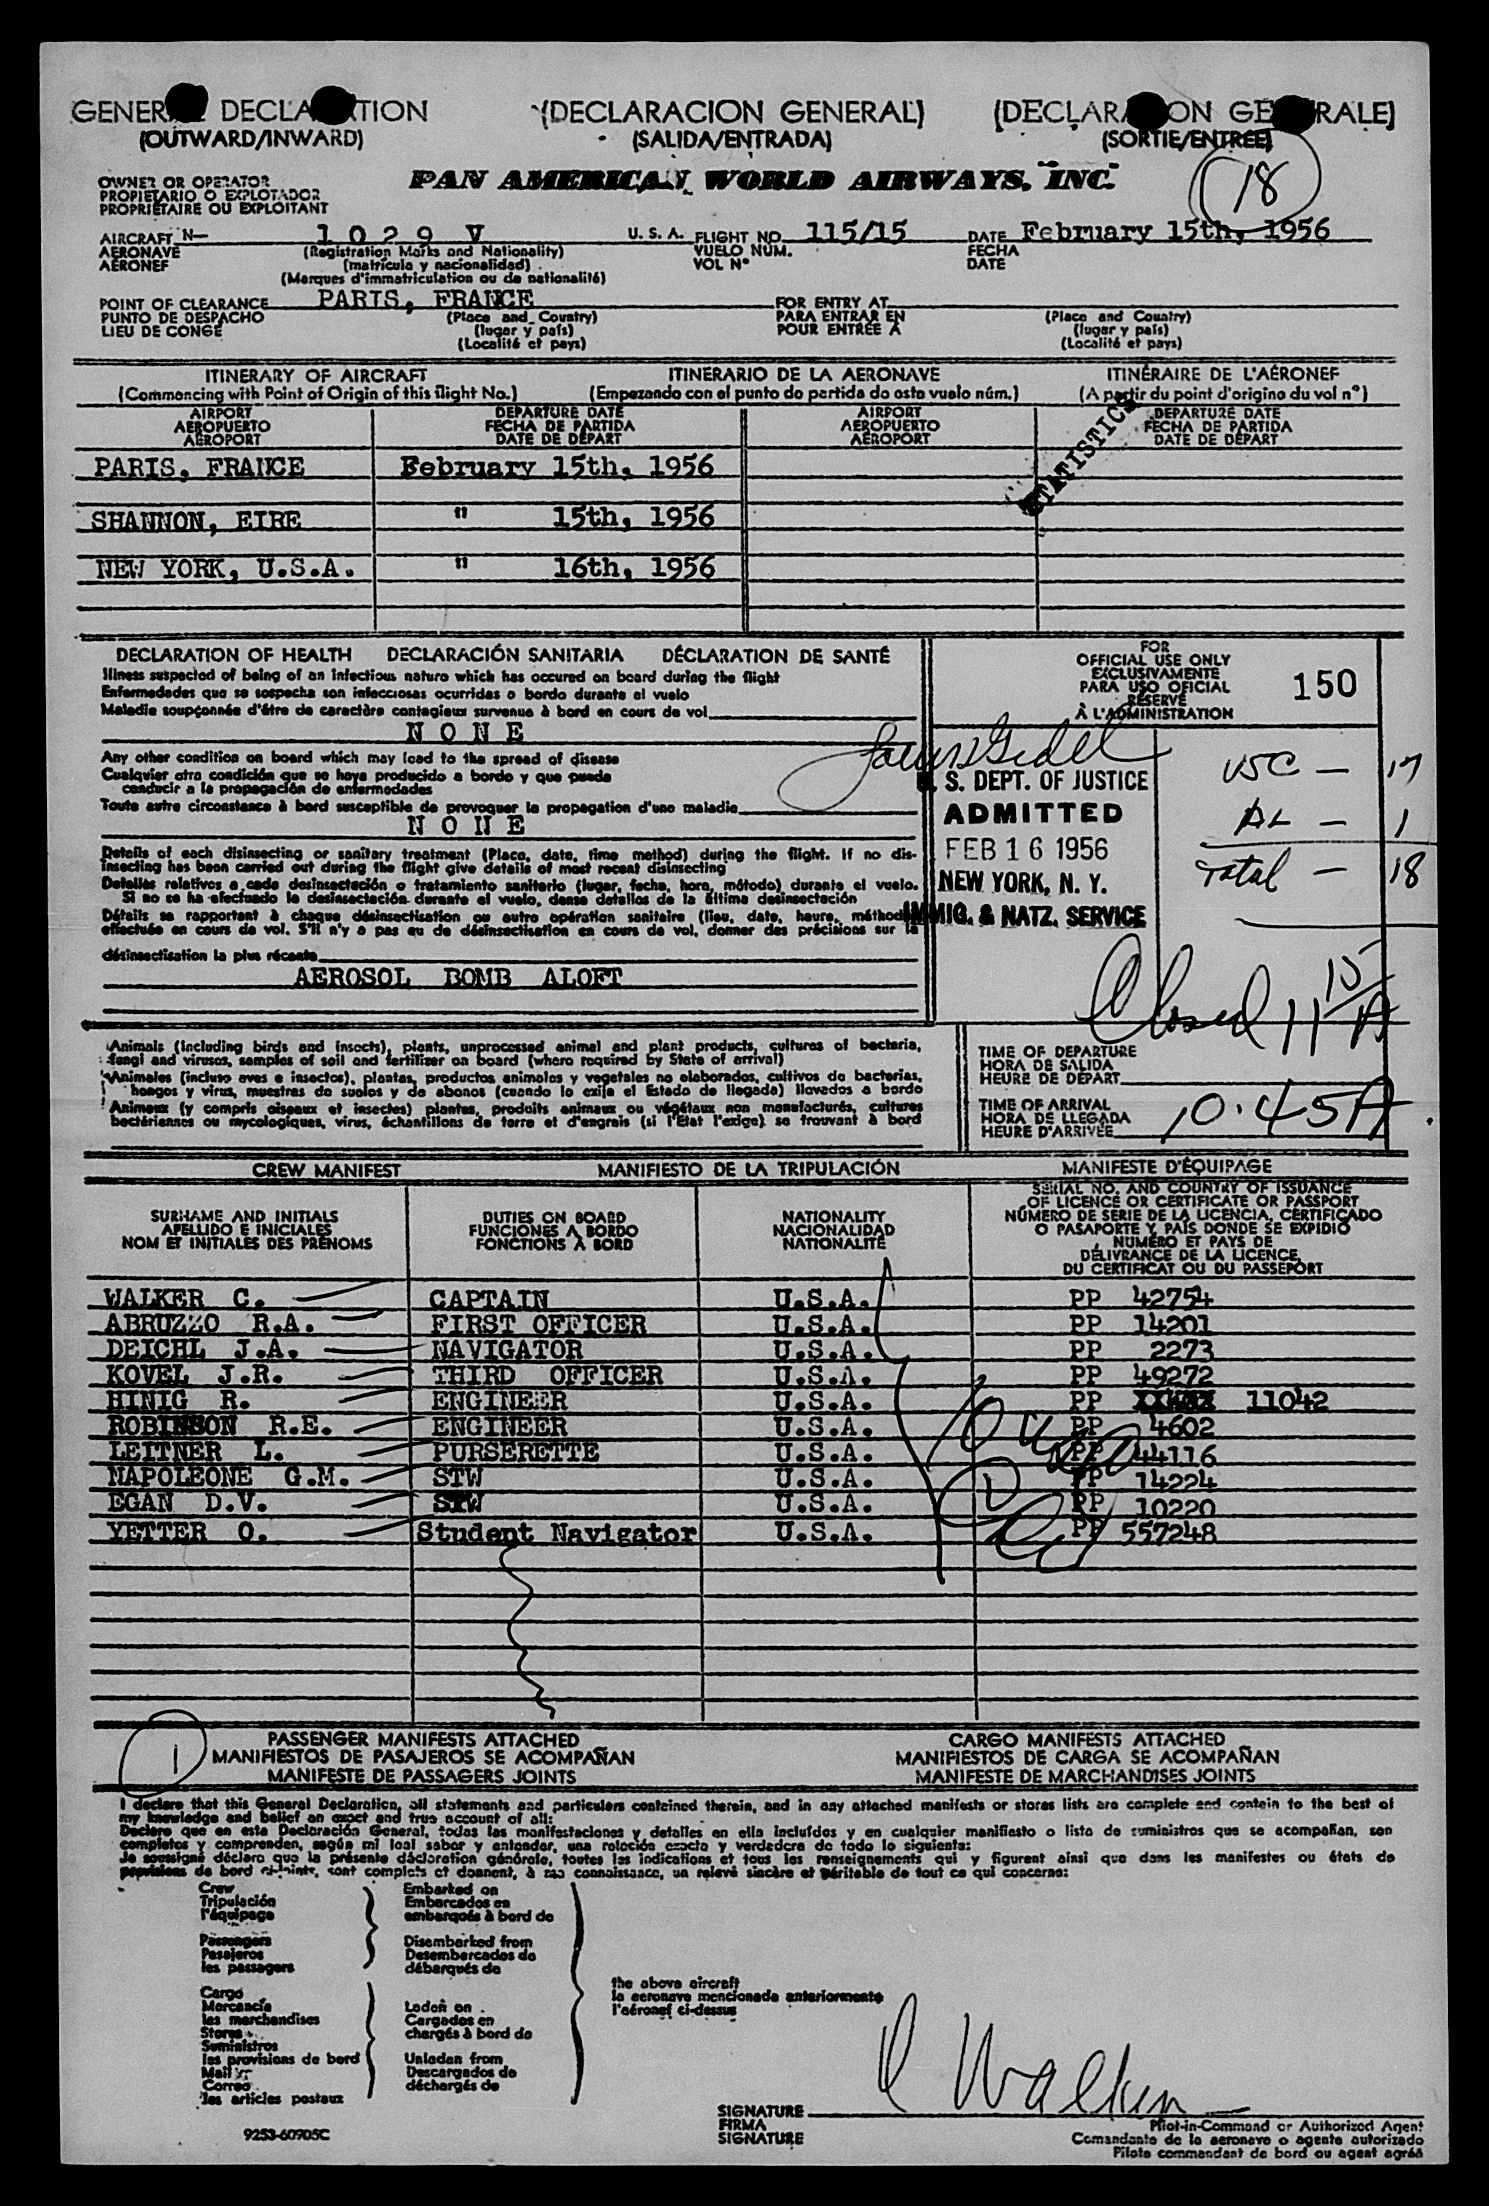 GENERAL DECLARATION (DECLARACION GENERAL) [DECLARATION GENERALE]
(OUTWARD/INWARD) (SALIDA/ENTRADA) (SORTIE/ENTREE)
18
OWNER OR OPERATOR PAN AMERICAN WORLD AIRWAYS, INC.
PROPIETARIO O EXPLOTADOR
PROPRIÉTAIRE OU EXPLOITANT
AIRCRAFT N— 1029 V U. S. A. FLIGHT NO. 115/15 DATE February 15th, 1956
AERONAVE (Registration Marks and Nationality) VUELO NÚM. FECHA
AÉRONEF (matrícula y nacionalidad) VOL N° DATE
(Marques d'immatriculation ou de nationalité)
POINT OF CLEARANCE PARIS, FRANCE FOR ENTRY AT
PUNTO DE DESPACHO (Place and Country) PARA ENTRAR EN (Place and Country)
LIEU DE CONGÉ (lugar y país) POUR ENTRÉE À (lugar y país)
(Localité et pays) (Localité et pays)
ITINERARY OF AIRCRAFT ITINERARIO DE LA AERONAVE ITINÉRAIRE DE L'AÉRONEF
(Commencing with Point of Origin of this flight No.) (Empezando con el punto de partida de este vuelo núm.) (A partir du point d'origine du vol n°)
AIRPORT DEPARTURE DATE AIRPORT DEPARTURE DATE
AEROPUERTO FECHA DE PARTIDA AEROPUERTO FECHA DE PARTIDA
AÉROPORT DATE DE DÉPART AÉROPORT DATE DE DÉPART
STATISTICS
PARIS, FRANCE February 15th, 1956
SHANNON, EIRE " 15th, 1956
NEW YORK, U.S.A. " 16th, 1956
DECLARATION OF HEALTH DECLARACIÓN SANITARIA DÉCLARATION DE SANTÉ
Illness suspected of being of an infectious nature which has occured on board during the flight
Enfermedades que se sospecha son infecciosas ocurridas a bordo durante el vuelo
Maladie soupçonnée d'être de caractère contagieux survenue à bord en cours de vol
N O N E
Any other condition on board which may lead to the spread of disease
Cualquier otra condición que se haya producido a bordo y que puede
conducir a la propagación de enfermedades
Toute autre circonstance à bord susceptible de provoquer la propagation d'une maladie
N O N E
Details of each disinsecting or sanitary treatment (Place, date, time method) during the flight. If no dis-
insecting has been carried out during the flight give details of most recent disinsecting
Detalles relativos a cada desinsectación o tratamiento sanitario (lugar, fecha, hora, método) durante el vuelo.
Si no se ha efectuado la desinsectación durante el vuelo, dense detalles de la última desinsectación
Détails se rapportant à chaque désinsectisation ou autre opération sanitaire (lieu, date, heure, méthode)
effectuée en cours de vol. S'il n'y a pas eu de désinsectisation en cours de vol, donner des précisions sur la
désinsectisation la plus récente
AEROSOL BOMB ALOFT
FOR
OFFICIAL USE ONLY
EXCLUSIVAMENTE
PARA USO OFICIAL
RÉSERVÉ
À L'ADMINISTRATION
150
U. S. DEPT. OF JUSTICE
ADMITTED
FEB 16 1956
NEW YORK, N. Y.
IMMIG. & NATZ. SERVICE
USC — 17
AL — 1
Total — 18
Closed 11 15 A
Animals (including birds and insects), plants, unprocessed animal and plant products, cultures of bacteria,
fungi and viruses, samples of soil and fertilizer on board (where required by State of arrival)
Animales (incluso aves e insectos), plantas, productos animales y vegetales no elaborados, cultivos de bacterias,
hongos y virus, muestras de suelos y de abonos (cuando lo exija el Estado de llegada) llevados a bordo
Animaux (y compris oiseaux et insectes) plantes, produits animaux ou végétaux non manufacturés, cultures
bactériennes ou mycologiques, virus, échantillons de terre et d'engrais (si l'Etat l'exige) se trouvant à bord
TIME OF DEPARTURE
HORA DE SALIDA
HEURE DE DÉPART
TIME OF ARRIVAL
HORA DE LLEGADA 10.45A
HEURE D'ARRIVÉE
CREW MANIFEST MANIFIESTO DE LA TRIPULACIÓN MANIFESTE D'ÉQUIPAGE
SURNAME AND INITIALS
APELLIDO E INICIALES
NOM ET INITIALES DES PRÉNOMS
DUTIES ON BOARD
FUNCIONES A BORDO
FONCTIONS À BORD
NATIONALITY
NACIONALIDAD
NATIONALITÉ
SERIAL NO. AND COUNTRY OF ISSUANCE
OF LICENCE OR CERTIFICATE OR PASSPORT
NÚMERO DE SERIE DE LA LICENCIA, CERTIFICADO
O PASAPORTE Y PAÍS DONDE SE EXPIDIÓ
NUMÉRO ET PAYS DE
DÉLIVRANCE DE LA LICENCE,
DU CERTIFICAT OU DU PASSEPORT
WALKER C. CAPTAIN U.S.A. PP 42754
ABRUZZO R.A. FIRST OFFICER U.S.A. PP 14201
DEICHL J.A. NAVIGATOR U.S.A. PP 2273
KOVEL J.R. THIRD OFFICER U.S.A. PP 49272
HINIG R. ENGINEER U.S.A. PP 11042
ROBINSON R.E. ENGINEER U.S.A. PP 4602
LEITNER L. PURSERETTE U.S.A. PP 44116
NAPOLEONE G.M. STW U.S.A. PP 14224
EGAN D.V. STW U.S.A. PP 10220
YETTER O. Student Navigator U.S.A. PP 557248
1
PASSENGER MANIFESTS ATTACHED CARGO MANIFESTS ATTACHED
MANIFIESTOS DE PASAJEROS SE ACOMPAÑAN MANIFIESTOS DE CARGA SE ACOMPAÑAN
MANIFESTE DE PASSAGERS JOINTS MANIFESTE DE MARCHANDISES JOINTS
I declare that this General Declaration, all statements and particulars contained therein, and in any attached manifests or stores lists are complete and contain to the best of
my knowledge and belief an exact and true account of all:
Declaro que en esta Declaración General, todas las manifestaciones y detalles en ella incluídos y en cualquier manifiesto o lista de suministros que se acompañan, son
completos y comprenden, según mi leal saber y entender, una relación exacta y verdadera de todo lo siguiente:
Je soussigné déclare que la présente déclaration générale, toutes les indications et tous les renseignements qui y figurent ainsi que dans les manifestes ou états de
provisions de bord ci-joints, sont complets et donnent, à ma connaissance, un relevé sincère et véritable de tout ce qui concerne:
Crew Embarked on
Tripulación Embarcados en
l'équipage embarqués à bord de
Passengers Disembarked from
Pasajeros Desembarcados de
les passagers débarqués de
the above aircraft
la aeronave mencionada anteriormente
l'aéronef ci-dessus
Cargo
Mercancía Laden on
les marchandises Cargados en
Stores chargés à bord de
Suministros
les provisions de bord Unladen from
Mail Descargados de
Correo déchargés de
les articles postaux
C Walker
SIGNATURE
FIRMA Pilot-in-Command or Authorized Agent
SIGNATURE Comandante de la aeronave o agente autorizado
Pilote commandant de bord ou agent agréé
9253-60905C